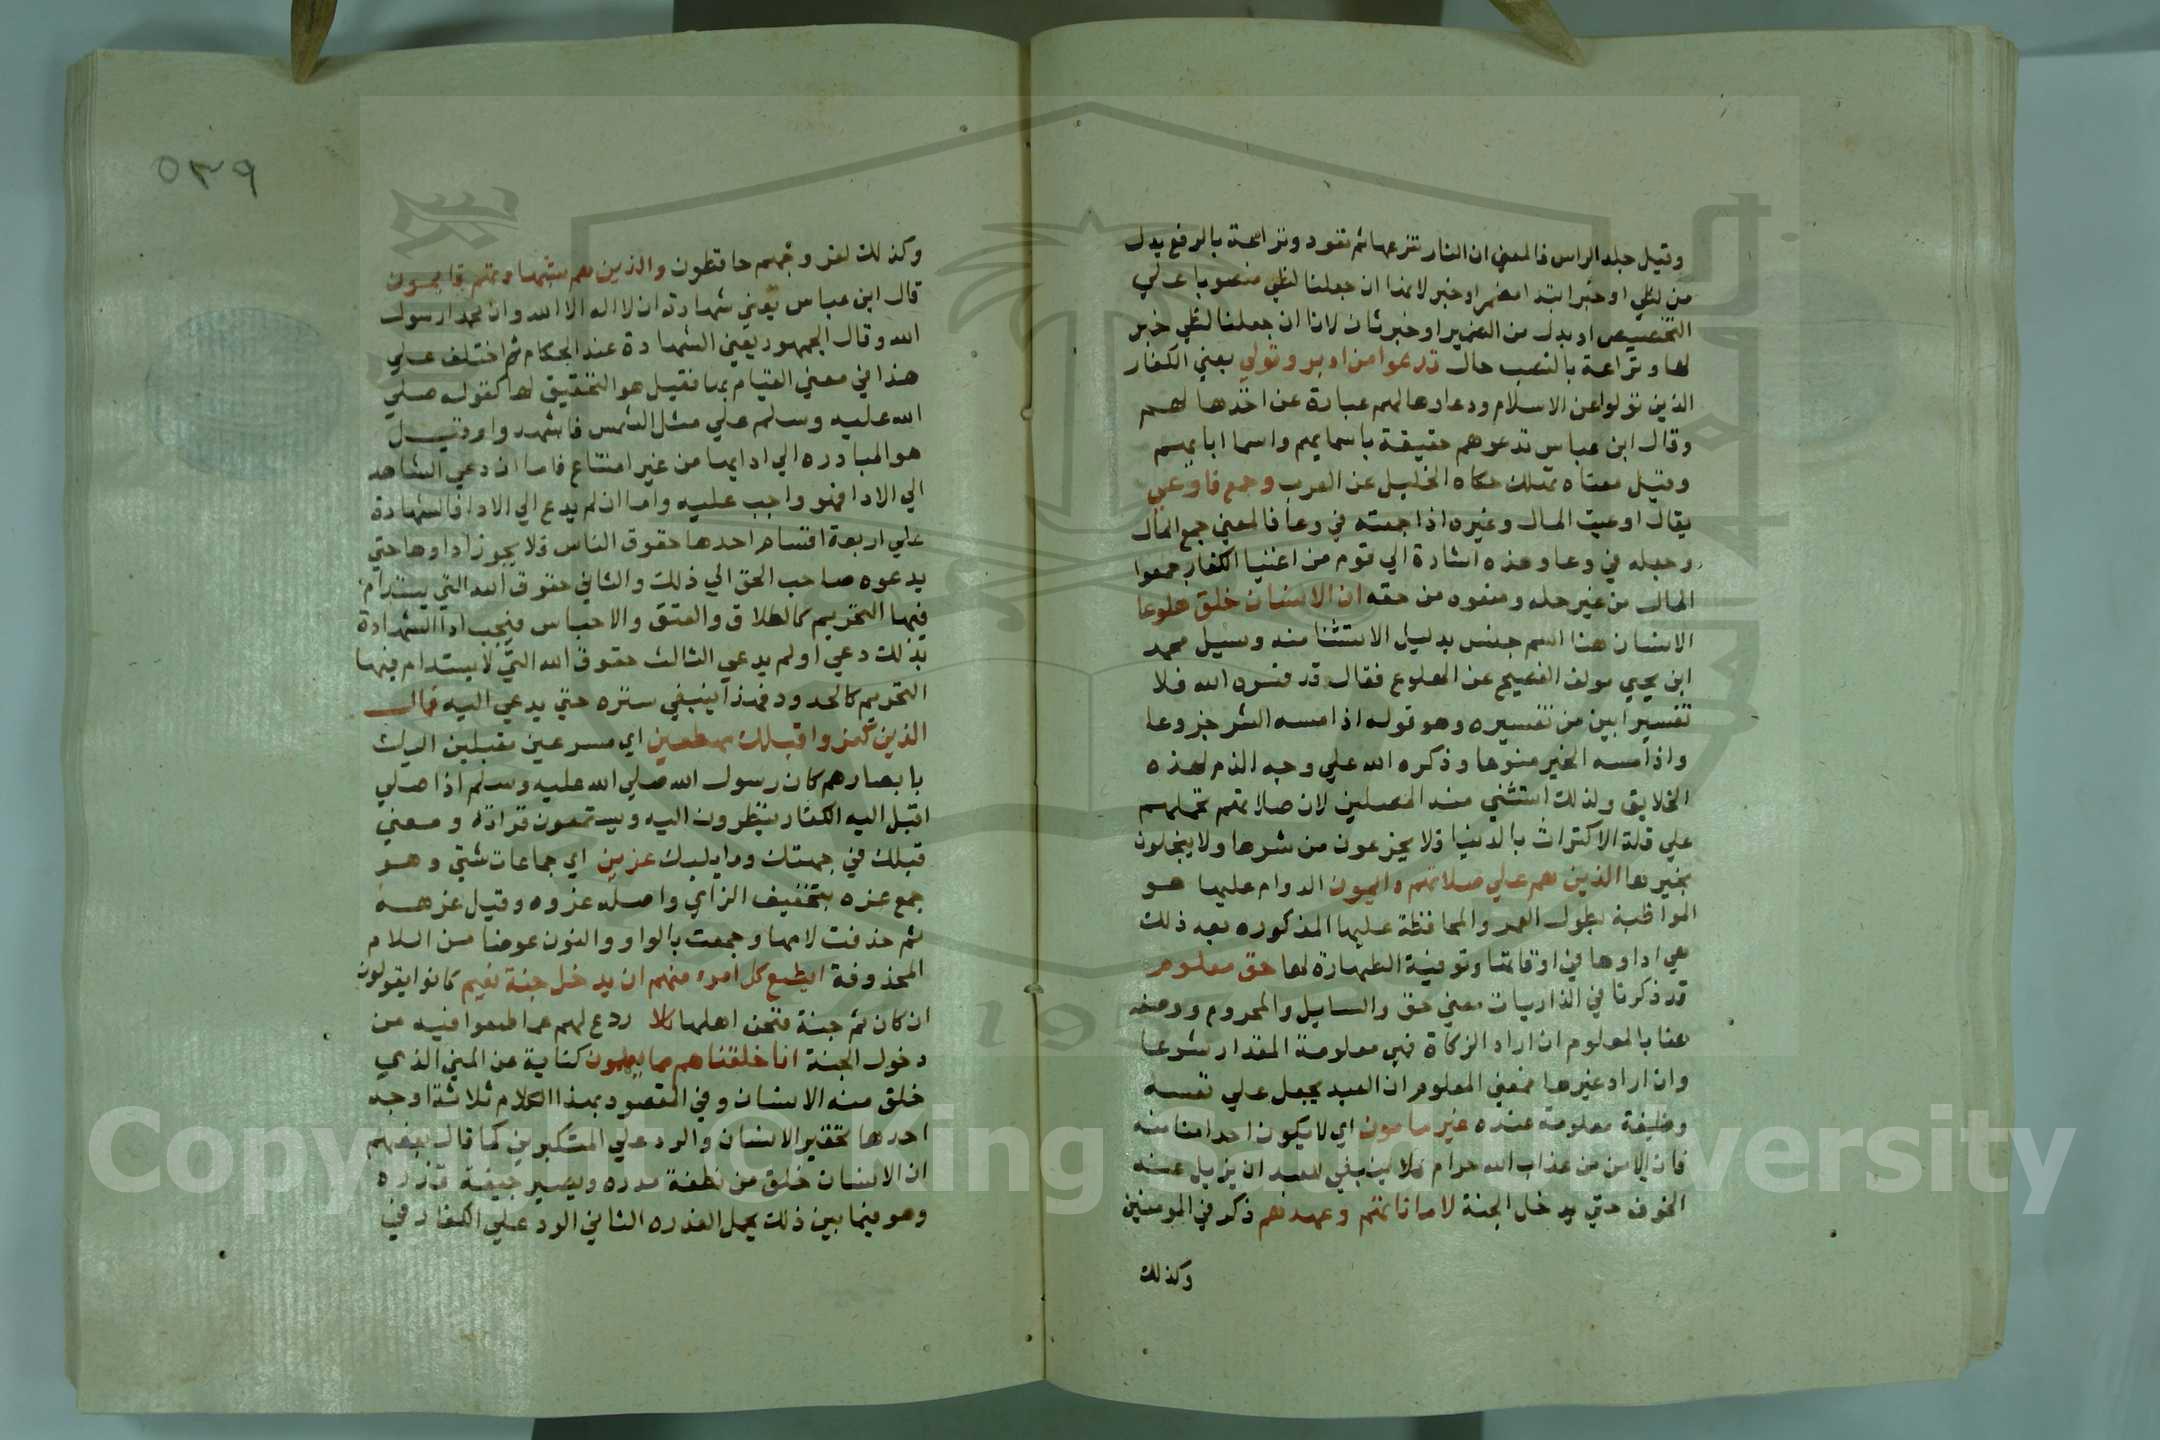 وقيل جلد الراس فالمعني ان النار تنزعها ثم تعود ونزاعة بالرفع بدل
من لظي او خبر ابتدا مضمر او خبر لانها ان جعلنا لظي منصوبا علي
التخصيص او بدل من الضمير او خبر ثان لان ان جعلنا لظي خبر
لها ونزاعة بالنصب حال تدعوا من ادبر وتولي يعني الكفار
الذين تولوا عن الاسلام ودعاوها لهم عبارة عن اخذها لهم
وقال ابن عباس تدعوهم حقيقة باسمايهم واسما ابايهم
وقيل معناه تهلك حكاه الخليل عن العرب وجمع فاوعي
يقال اوعيت المال وغيره اذا جمعته في وعا فالمعني جمع المال
وجعله في وعا وهذه اشارة الي قوم من اغنيا الكفار جمعوا
المال من غير حله ومنعوه من حقه ان الانسان خلق هلوعا
الانسان هنا اسم جنس بدليل الاستثنا منه وسيل محمد
ابن يحيي مولف الفصيح عن الهلوع فقال قد فسره الله فلا
تفسير ابين من تفسيره وهو قوله اذا مسه الشر جزوعا
واذا مسه الخير منوعا وذكره الله علي وجه الذم لهذه
الخلايق ولذلك استثني منه المصلين لان صلاتهم تحملهم
علي قلة الاكتراث بالدنيا فلا يجزعون من شرها ولا يبخلون
بخيرها الذين هم علي صلاتهم دايمون الدوام عليها هو
المواظبة بطول العمر والمحافظة عليها المذكوره بعد ذلك
هي اداوها في اوقاتها وتوفية الطهارة لها حق معلوم
قد ذكرنا في الذاريات معني حق والسايل والمحروم ووصفه
هنا بالمعلوم ان اراد الزكاة فهي معلومة المقدار شرعا
وان اراد غيرها فمعني المعلوم ان العبد يجعل علي نفسه
وظيفة معلومة عنده غير مامون اي لا يكون احد امنا منه
فان الامن من عذاب الله حرام فلا ينبغي للعبد ان يزيل عنه
الخوف حتي يدخل الجنة لاماناتهم وعهدهم ذكر في المومنين
وكذلك
٥٣٩
وكذلك لفروجهم حافظون والذين هم بشهاداتهم قايمون
قال ابن عباس يعني شهادة ان لا اله الا الله وان محمدا رسول
الله وقال الجمهور يعني الشهادة عند الحكام ثم اختلف علي
هذا في معني القيام بها فقيل هو التحقيق لها كقوله صلي
الله عليه وسلم علي مثل الشمس فاشهد واوقيل
هو المبادره الي ادايها من غير امتناع فاما ان دعي الشاهد
الي الادا فهو واجب عليه واما ان لم يدع الي الادا فالشهادة
علي اربعة اقسام احدها حقوق الناس فلا يجوز اداوها حتي
يدعوه صاحب الحق الي ذلك والثاني حقوق الله التي يستدام
فيها التحريم كالطلاق والعتق والاحباس فيجب ادا الشهادة
بذلك دعي او لم يدعي الثالث حقوق الله التي لا يستدام فيها
التحريم كالحدود فهذا ينبغي ستره حتي يدعي اليه فمال
الذين كفروا قبلك مهطعين اي مسرعين مقبلين اليك
بابصارهم كان رسول الله صلي الله عليه وسلم اذا صلي
اقبل اليه الكفار ينظرون اليه ويستمعون قراءة ومعني
قبلك في جهتك وما يليك عزين اي جماعات شتي وهو
جمع عزه بتخفيف الزاي واصله عزوه وقيل عزهه
ثم حذفت لامها وجمعت بالواو والنون عوضا من اللام
المحذوفة ايطمع كل امره منهم ان يدخل جنة نعيم كانوا يقولون
ان كان ثم جنة فنحن اهلها كلا ردع لهم عما طمعوا فيه من
دخول الجنة انا خلقناهم مما يعلمون كناية عن المني الذي
خلق منه الانسان وفي المقصود بهذا الكلام ثلاثة اوجه
احدها تحقير الانسان والرد علي المتكبرين كما قال بعضهم
ان الانسان خلق من نطفة مدره ويصير جيفة قذره
وهو فيما بين ذلك يحمل العذره الثاني الرد علي الكفار في
Copyright © King Saud University